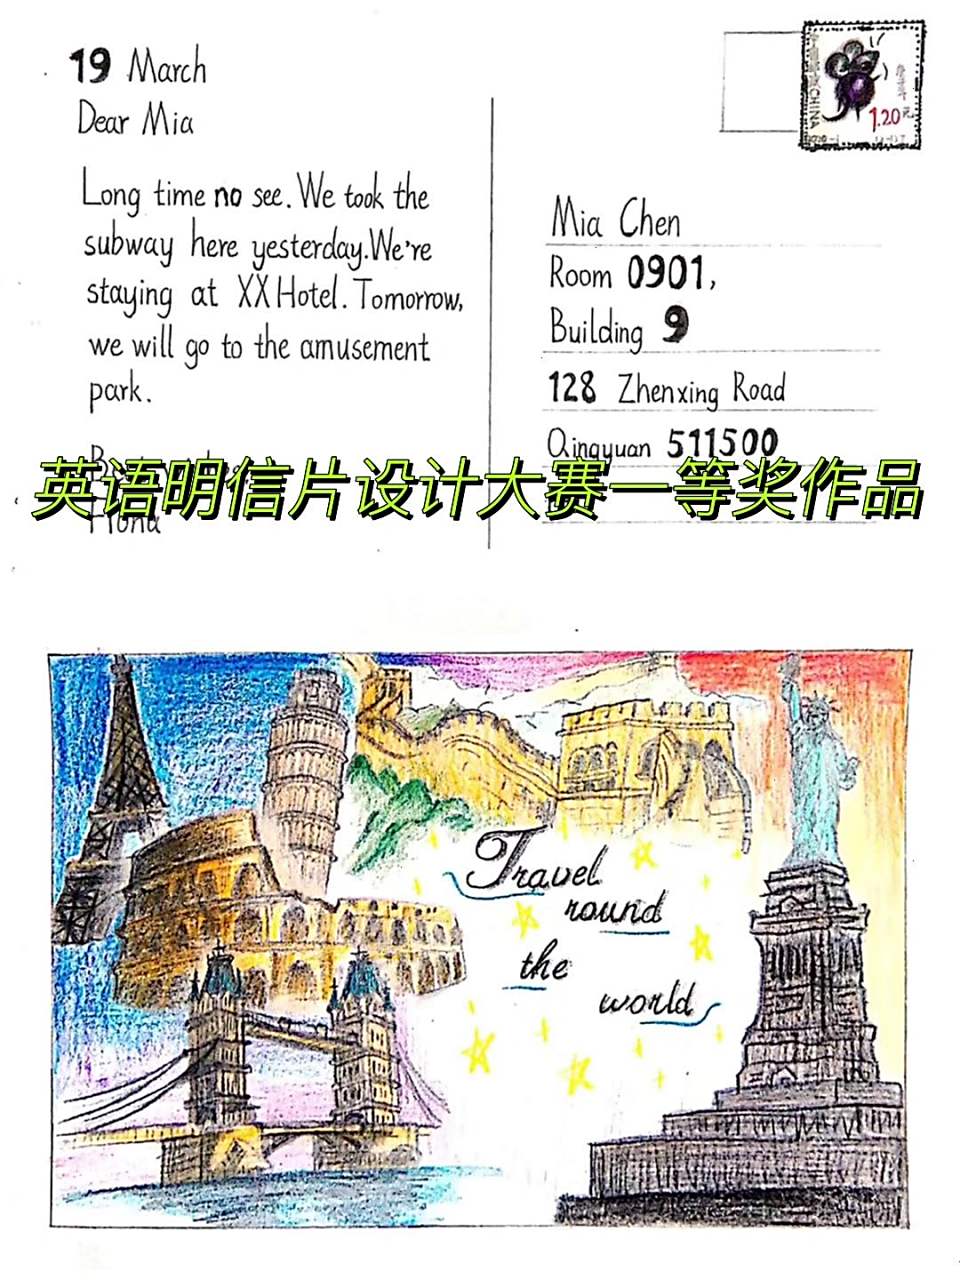 19 March
Dear Mia
Long time no see. We took the
subway here yesterday. We're
staying at XX Hotel. Tomorrow,
we will go to the amusement
park.
Fiona
CHINA
1.20元
Mia Chen
Room 0901,
Building 9
128 Zhenxing Road
Qingyuan 511500
英语明信片设计大赛一等奖作品
Travel
round
the
world